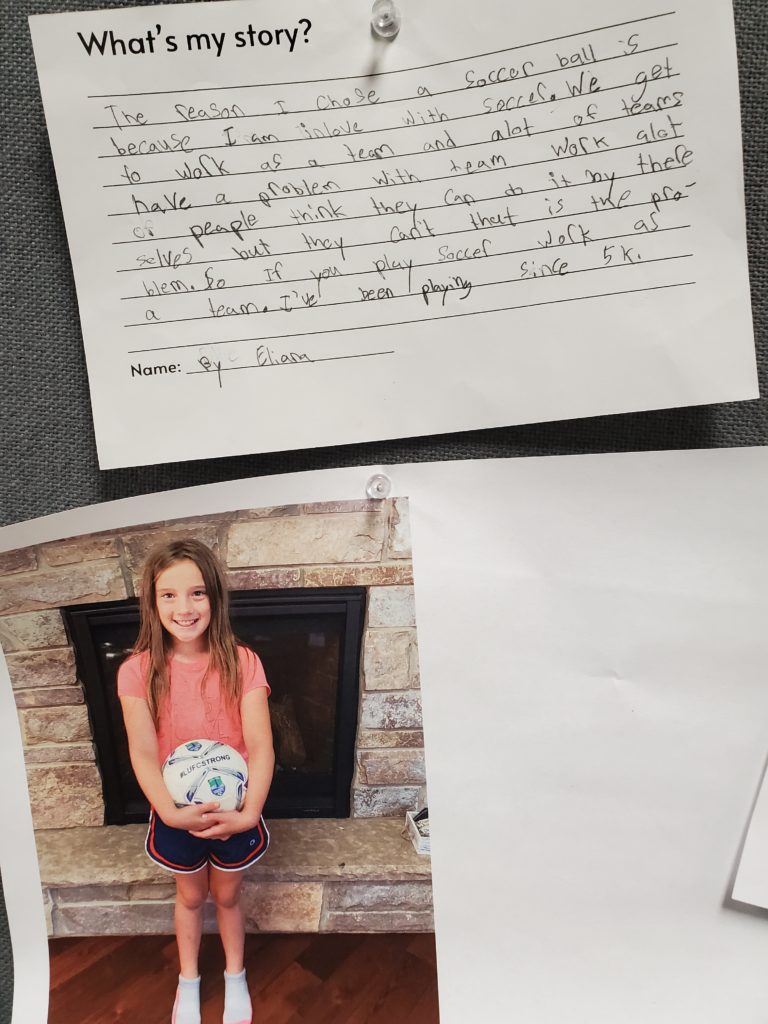 What's my story?
The reason I chose a soccer ball is
because I am inlove with soccer. We get
to work as a team and alot of teams
have a problem with team work alot
of peaple think they can do it by there
selves but they can't that is the pro-
blem. So if you play soccer work as
a team. I've been playing since 5k.
Name: By Eliana
#LUFCSTRONG